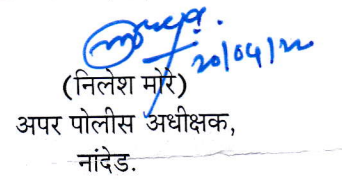 20/04/22
(निलेश मोरे)
अपर पोलीस अधीक्षक,
नांदेड.